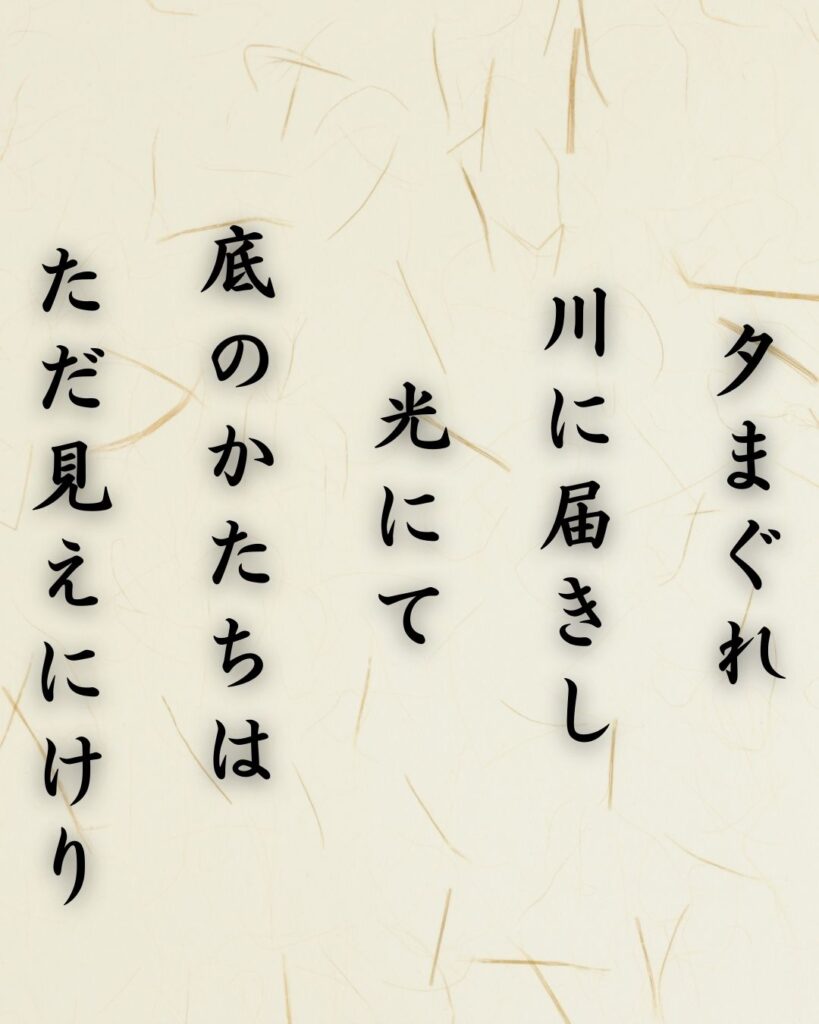 夕まぐれ
川に届きし
光にて
底のかたちは
ただ見えにけり